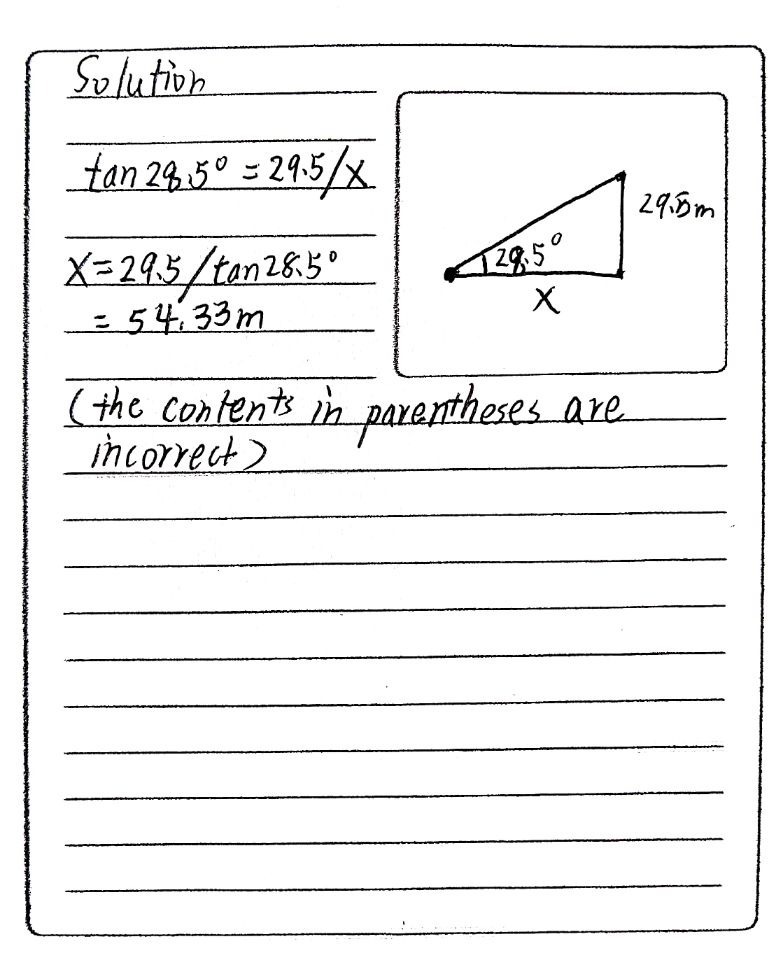 Solution
tan 28.5° = 29.5/X
X = 29.5/tan 28.5°
= 54.33m
29.5m
28.5°
X
(the contents in parentheses are
incorrect)